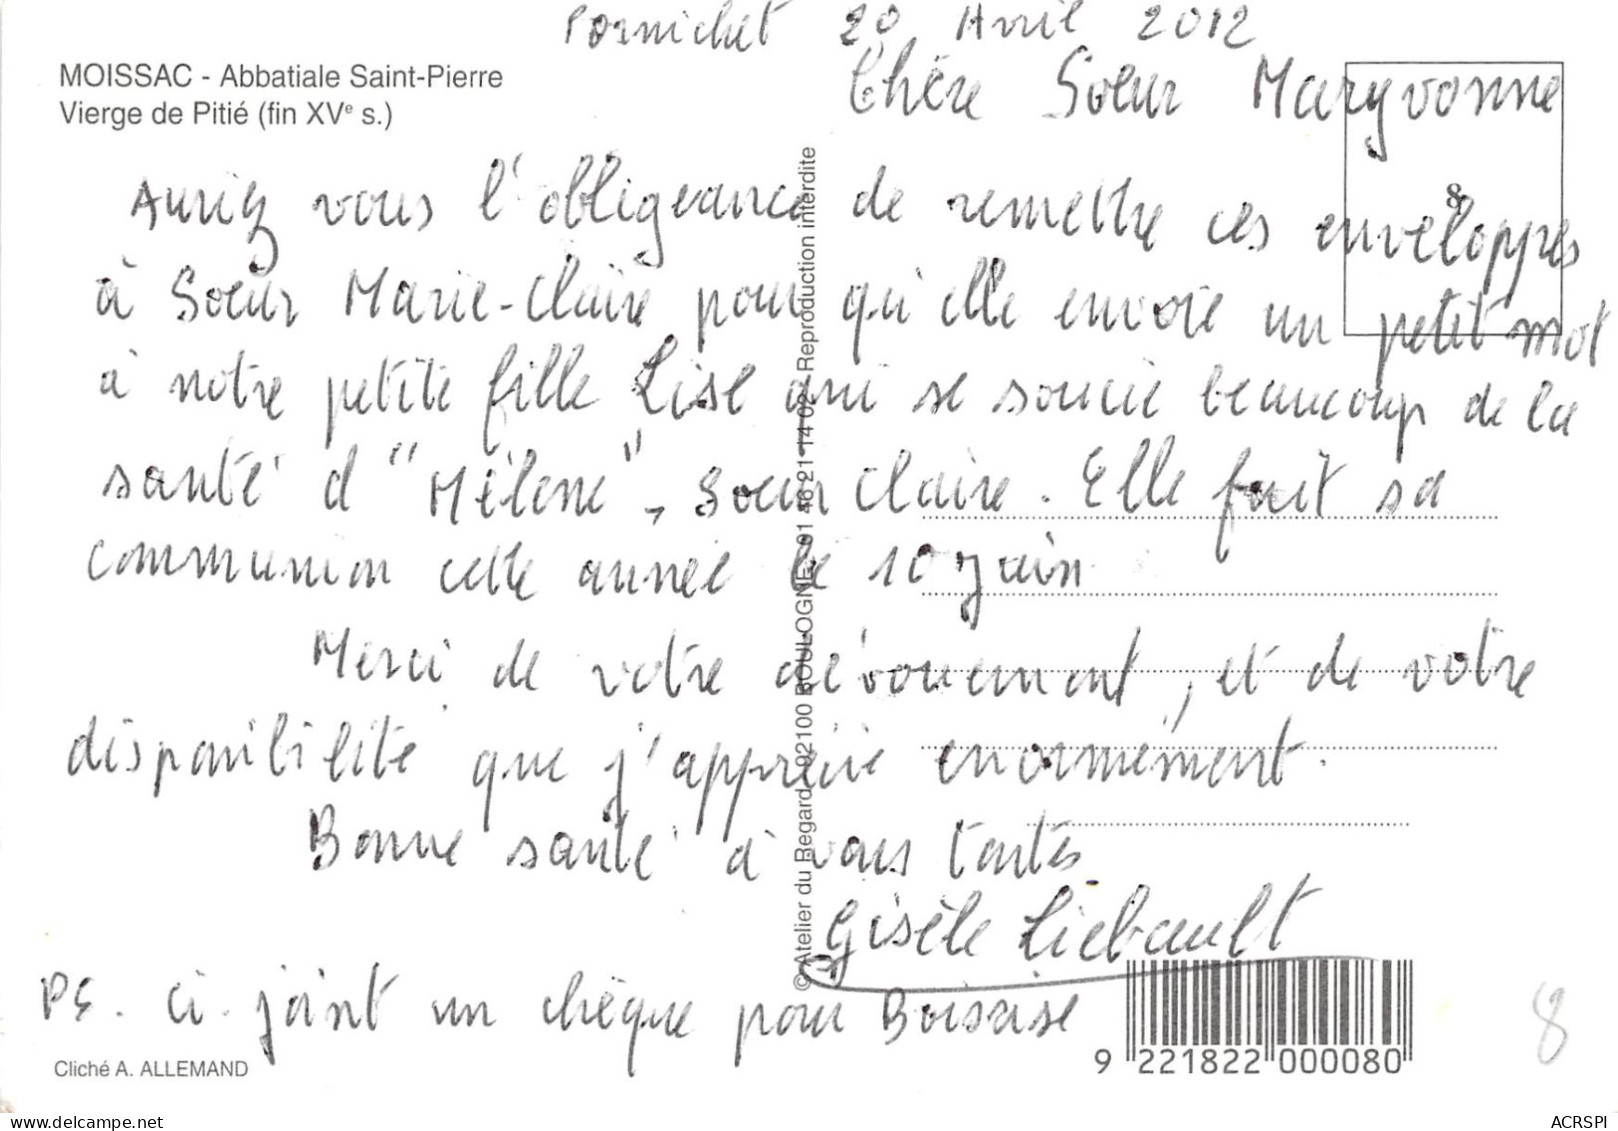 Pornichet 20 Avril 2012
MOISSAC - Abbatiale Saint-Pierre
Vierge de Pitié (fin XVe s.)
Chère Soeur Maryvonne
Auriez vous l'obligeance de remettre ces enveloppes
à Soeur Marie-Claire pour qu'elle envoie un petit mot
à notre petite fille Lise qui se soucie beaucoup de la
santé d "Hélène", Soeur Claire. Elle fait sa
communion cette année le 10 juin
Merci de votre dévouement, et de votre
disponibilité que j'apprécie enormément.
Bonne santé à vous toutes
Gisèle Liebault
PS. Ci-joint un chèque pour
Cliché A. ALLEMAND
© Atelier du Regard - 92100 BOULOGNE - 01 46 21 14 02 - Reproduction interdite
9 221822 000080
8
8
ACRSPI